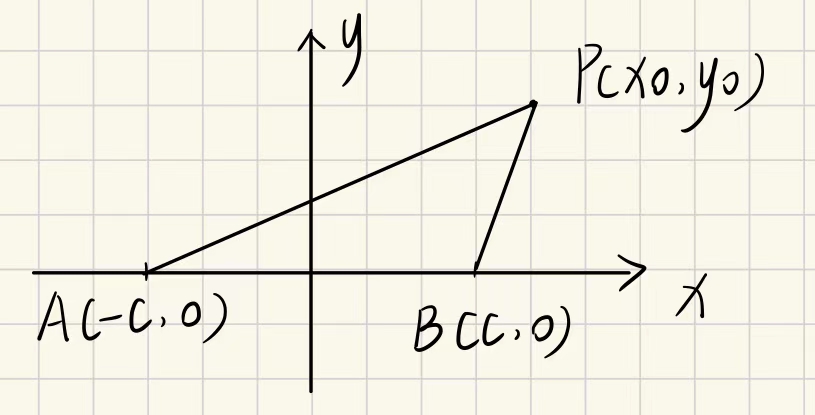 y
P(x0, y0)
A(-C, 0)
B(C, 0)
x